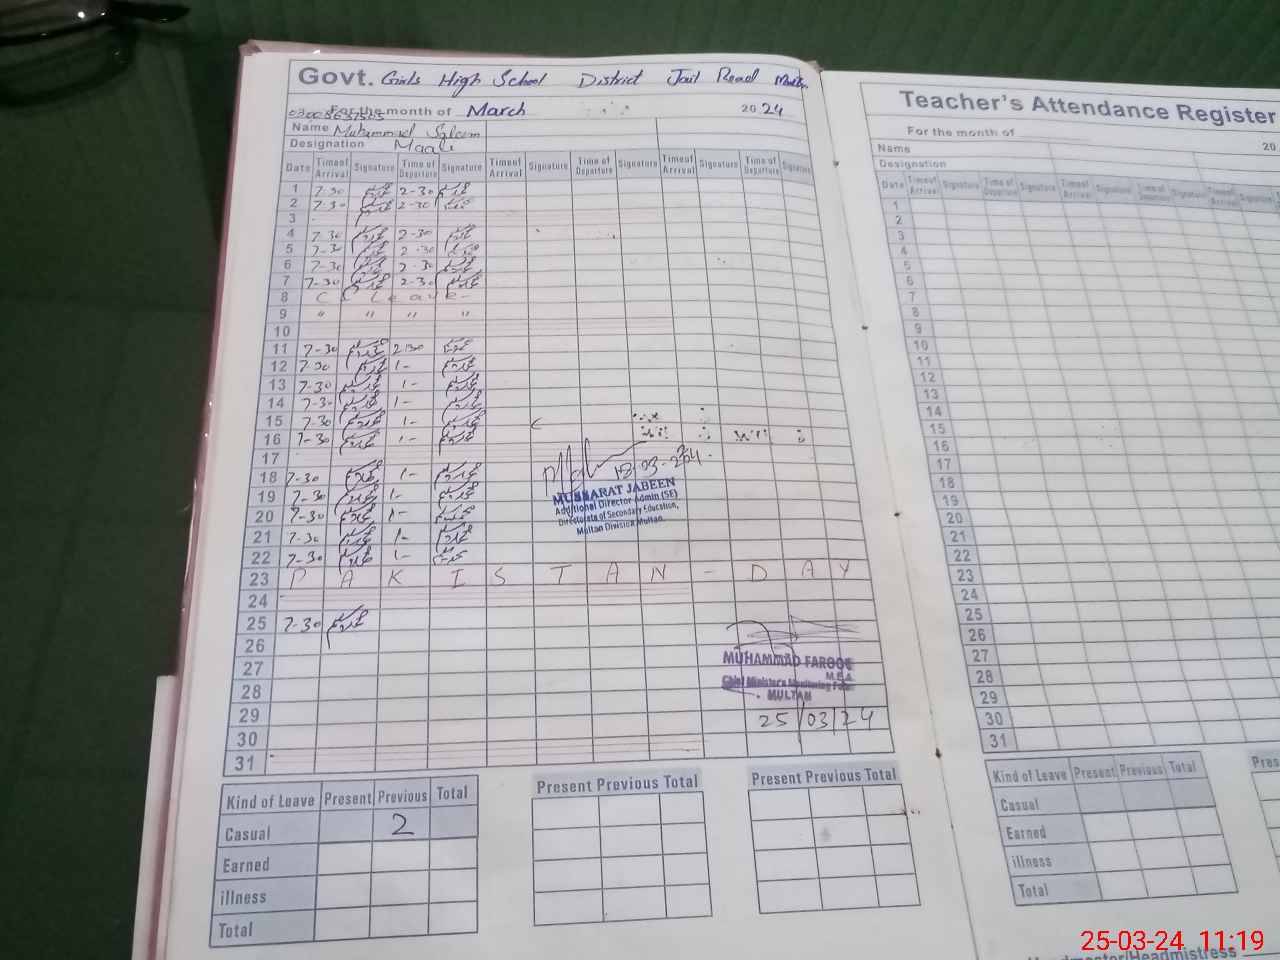 Govt. Girls High School District Jail Road
For the month of March 2024
Name Muhammad Saleem
Designation Maali
Date Time of Arrival Signature Time of Departure Signature Time of Arrival Signature Time of Departure Signature Time of Arrival Signature Time of Departure Signature
1 7-30 2-30
2 7-30 2-30
3
4 7-30 2-30
5 7-30 2-30
6 7-30 2-30
7 7-30 2-30
8 C Leave
9 " " " "
10
11 7-30 2-30
12 7-30 1-
13 7-30 1-
14 7-30 1-
15 7-30 1-
16 7-30 1-
17
18 7-30 1-
19 7-30 1-
20 7-30 1-
21 7-30 1-
22 7-30 1-
23 PAKISTAN-DAY
24
25 7-30
26
27
28
29
30
31
MUSSARAT JABEEN
Additional Director Admin (SE)
Directorate of Secondary Education,
Multan Division Multan.
MUHAMMAD FAROOQ
M.E.A
Chief Minister's Monitoring
MULTAN
25/03/24
Kind of Leave Present Previous Total
Casual 2
Earned
illness
Total
Present Previous Total
Present Previous Total
Teacher's Attendance Register
For the month of 20
Name
Designation
Date Time of Arrival Signature Time of Departure Signature Time of Arrival Signature Time of Departure Signature Time of Arrival Signature
1
2
3
4
5
6
7
8
9
10
11
12
13
14
15
16
17
18
19
20
21
22
23
24
25
26
27
28
29
30
31
Kind of Leave Present Previous Total
Casual
Earned
illness
Total
Pres
Headmaster/Headmistress
25-03-24 11:19